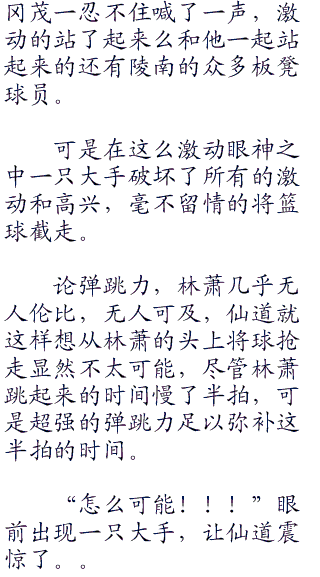 冈茂一忍不住喊了一声，激
动的站了起来么和他一起站
起来的还有陵南的众多板凳
球员。
可是在这么激动眼神之
中一只大手破坏了所有的激
动和高兴，毫不留情的将篮
球截走。
论弹跳力，林萧几乎无
人伦比，无人可及，仙道就
这样想从林萧的头上将球抢
走显然不太可能，尽管林萧
跳起来的时间慢了半拍，可
是超强的弹跳力足以弥补这
半拍的时间。
“怎么可能！！！”眼
前出现一只大手，让仙道震
惊了。。